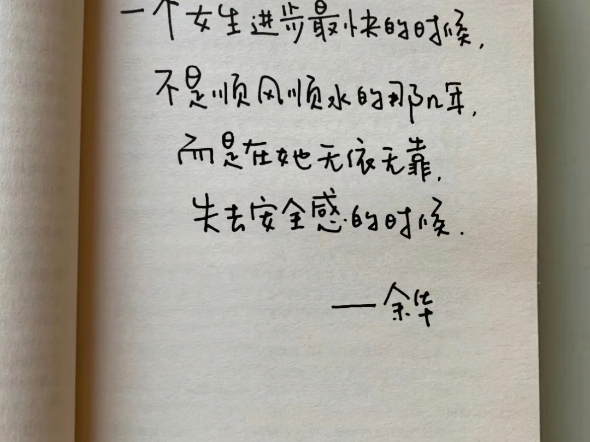 一个女生进步最快的时候,
不是顺风顺水的那几年,
而是在她无依无靠,
失去安全感的时候.
——余华